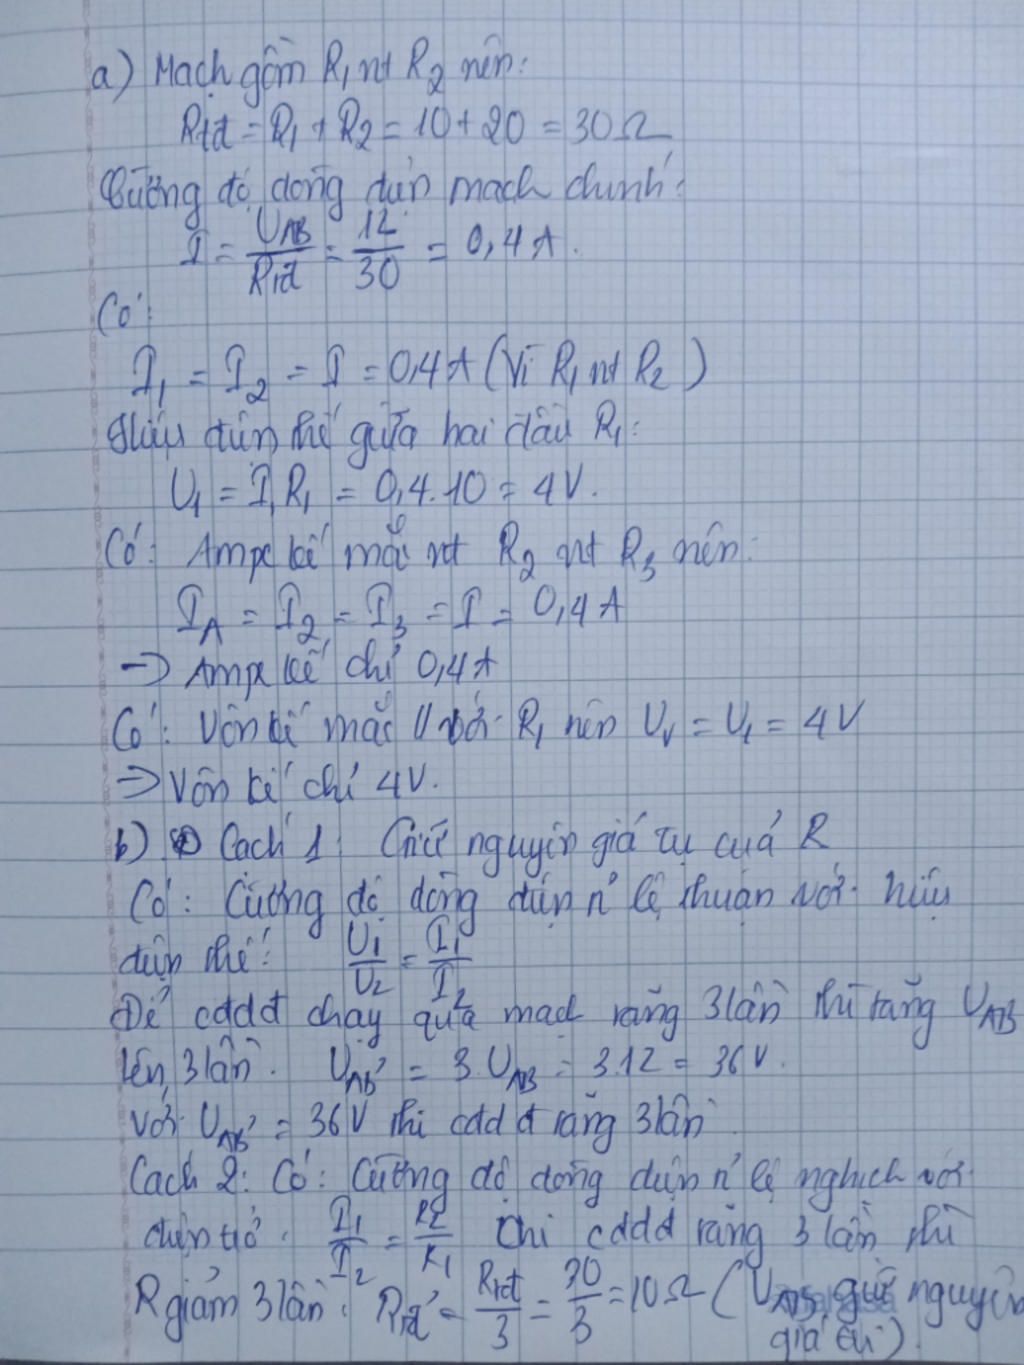 a) Mạch gồm R₁ nt R₂ nên:
Rtđ = R₁ + R₂ = 10 + 20 = 30 Ω
Cường độ dòng điện mạch chính:
I = U_AB/Rtđ = 12/30 = 0,4 A.
Có:
I₁ = I₂ = I = 0,4 A (Vì R₁ nt R₂)
Hiệu điện thế giữa hai đầu R₁:
U₁ = I₁R₁ = 0,4.10 = 4V.
Có: Ampe kế mắc nt R₂ nt R₃ nên:
I_A = I₂ = I₃ = I = 0,4 A
→ Ampe kế chỉ 0,4 A
Có: Vôn kế mắc // với R₁ nên U_V = U₁ = 4V
⇒ Vôn kế chỉ 4V.
b) Cách 1: Giữ nguyên giá trị của R
Có: Cường độ dòng điện tỉ lệ thuận với hiệu
điện thế: U₁/U₂ = I₁/I₂
Để cđdđ chạy qua mạch tăng 3 lần thì tăng U_AB
lên 3 lần. U_AB' = 3.U_AB = 3.12 = 36V.
Với U_AB' = 36V thì cđdđ tăng 3 lần
Cách 2: Có: Cường độ dòng điện tỉ lệ nghịch với
điện trở. I₁/I₂ = R₂/R₁ Khi cđdđ tăng 3 lần thì
R giảm 3 lần: Rtđ' = Rtđ/3 = 30/3 = 10 Ω (U_AB giữ nguyên
giá trị).